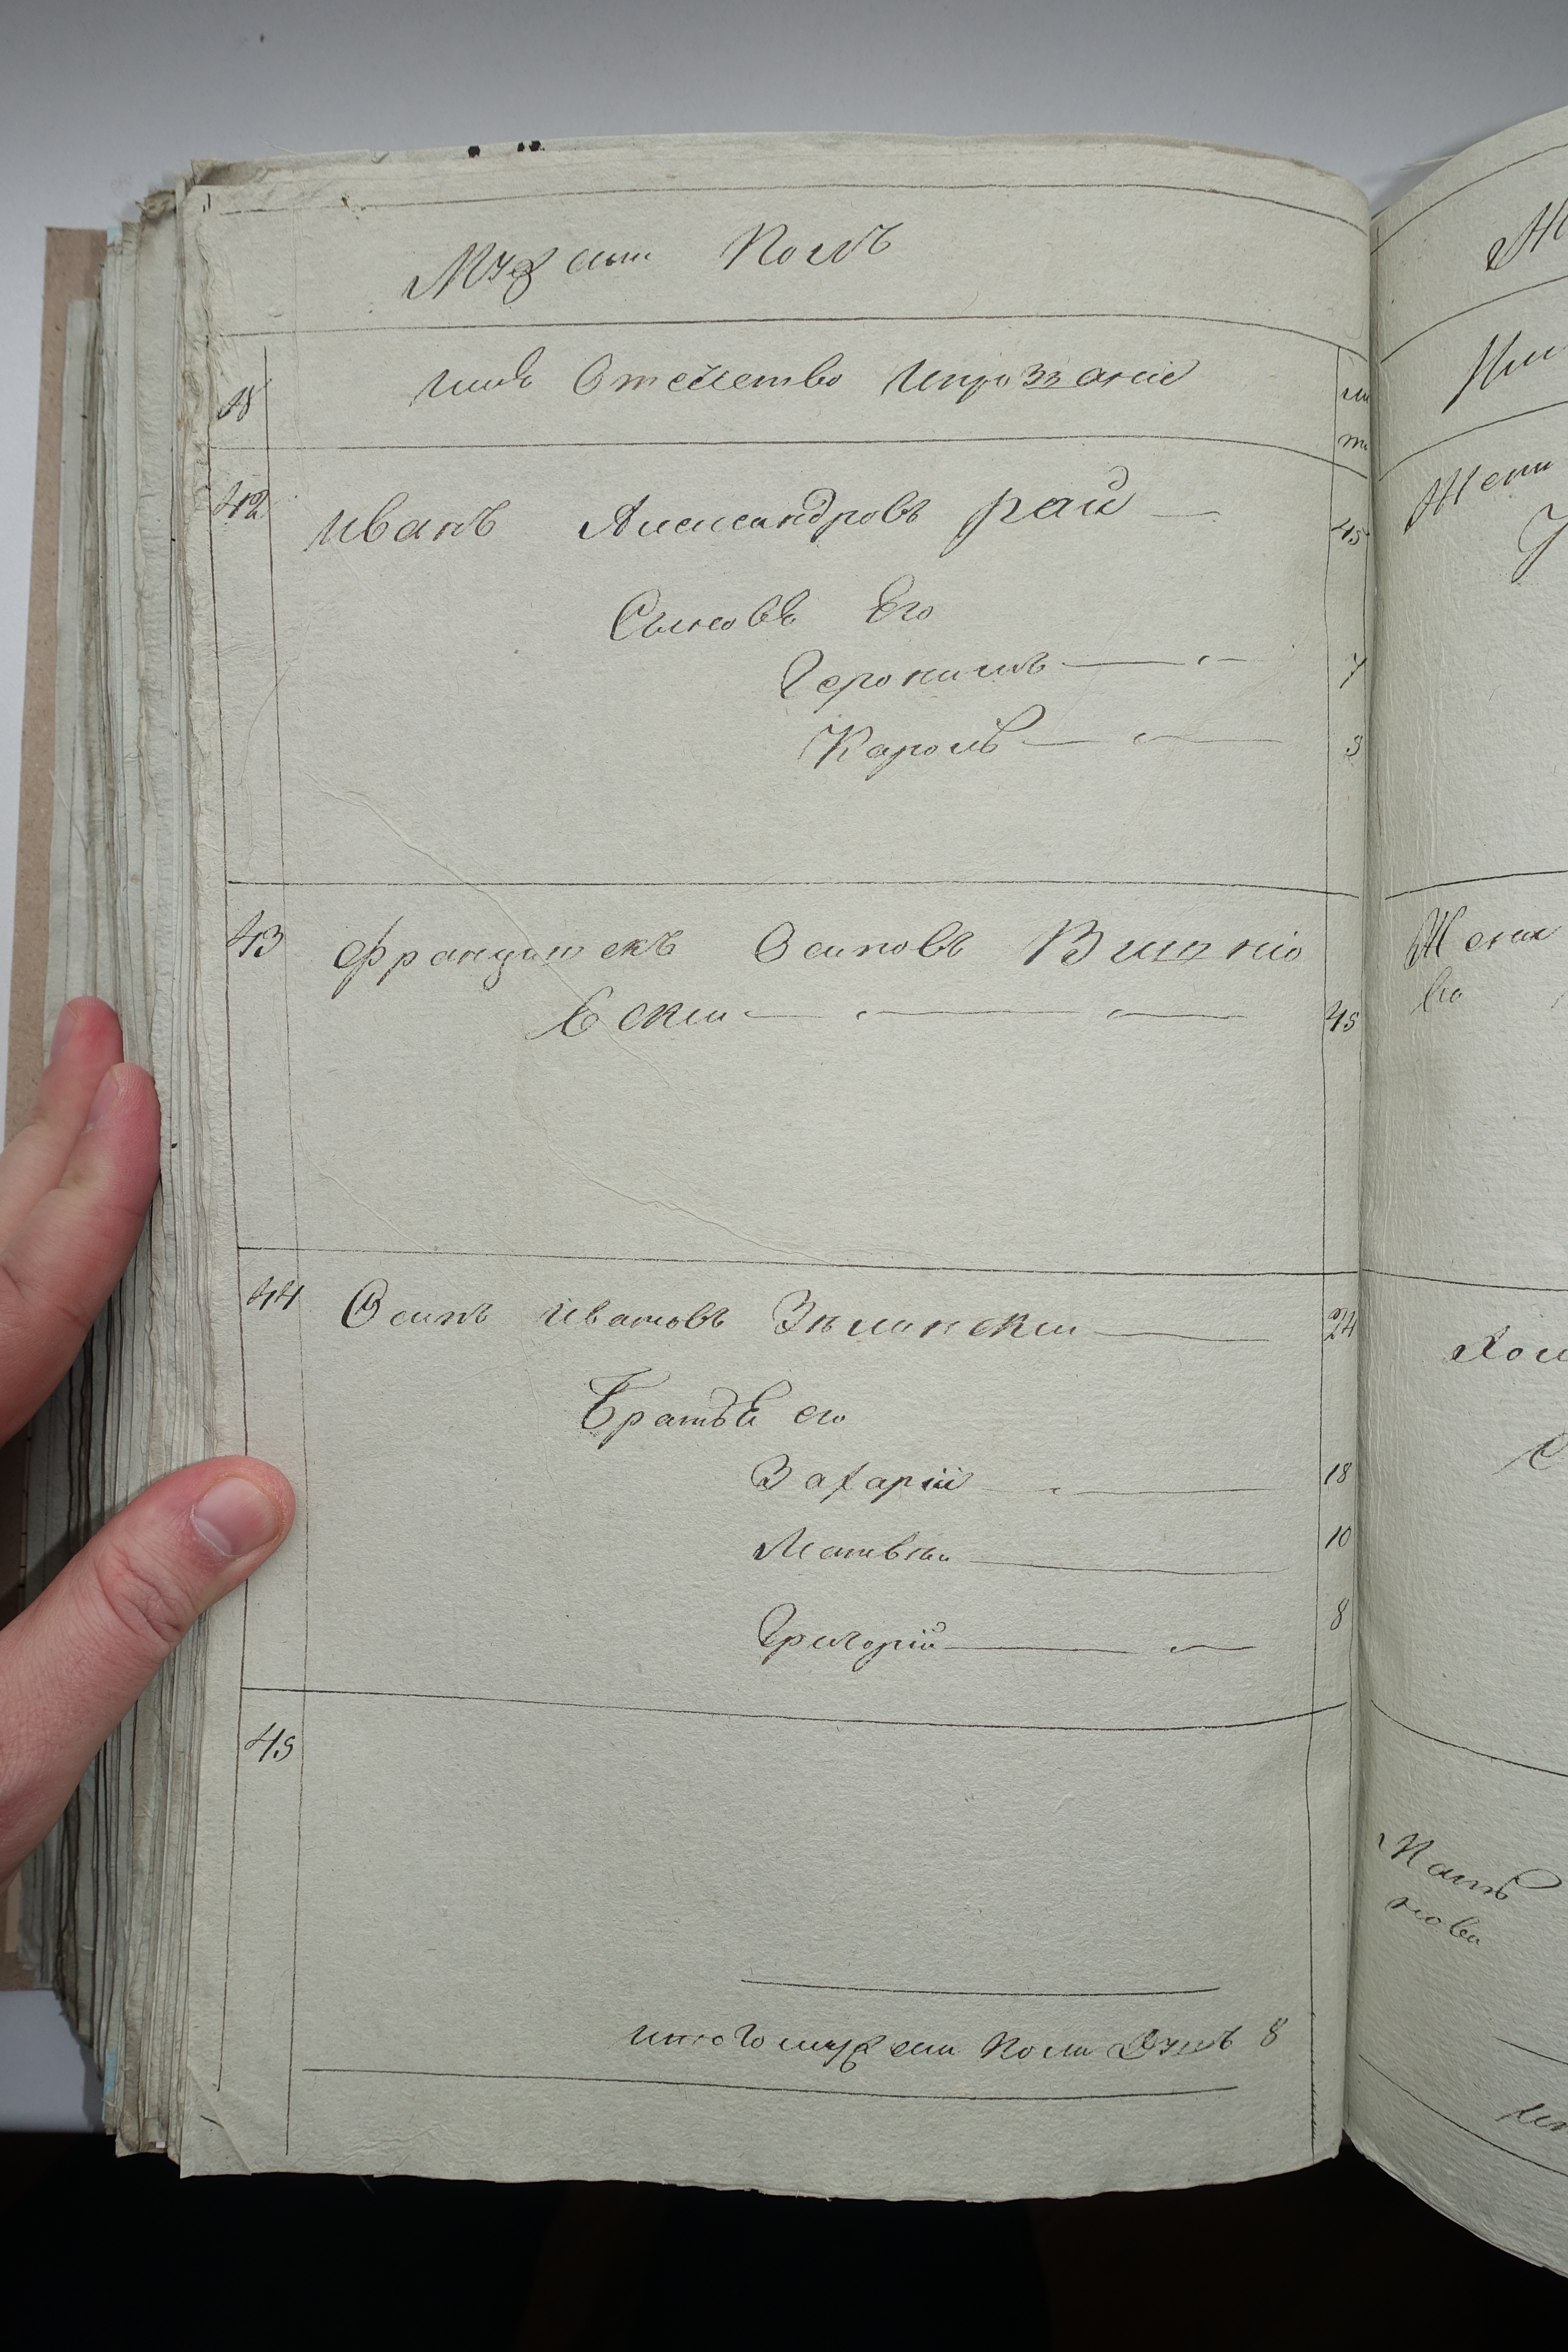 Мужеск Полъ
№ имя Отечество ипрозванiе
42 иванъ Александровъ рай — 45
Сыновя Его
Геронимъ — 7
Кароль — 3
43 францишекъ Осиповъ Вишнiо
вски — 45
44 Осипъ ивановъ Зѣлински — 24
Братья его
Захарiй — 18
Матвѣи — 10
Григорiй — 8
45
итого мужеска Пола Душъ 8
Жена
его